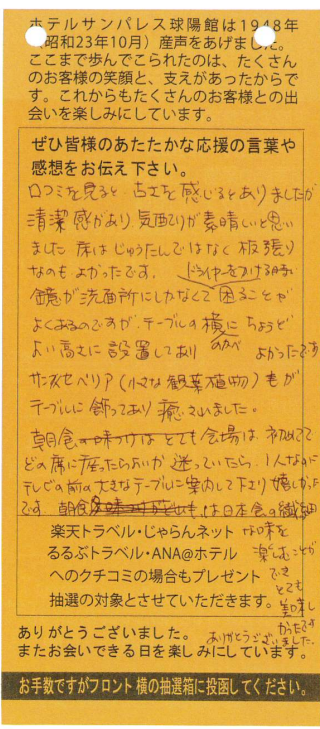 ホテルサンパレス球陽館は1948年
（昭和23年10月）産声をあげました。
ここまで歩んでこられたのは、たくさん
のお客様の笑顔と、支えがあったからで
す。これからもたくさんのお客様との出
会いを楽しみにしています。
ぜひ皆様のあたたかな応援の言葉や
感想をお伝え下さい。
口コミを見ると 古さを感じるとありましたが
清潔感があり気配りが素晴しいと思い
ました 床はじゅうたんではなく板張り
なのもよかったです。ドライヤーをかける時
鏡が洗面所にしかなくて困ることが
よくあるのですが、テーブルの横にちょうど
よい高さに設置してあり よかったです
サンスベリア（小さな観葉植物）もが
テーブルに飾ってあり 癒されました。
朝食の味つけはとても会場は、初めてで
どの席に座ったらよいか迷っていたら、1人なのに
テレビの前の大きなテーブルに案内して下さり嬉しかった
です。朝食は日本食の繊細
な味を
楽しむことが
でき
とても
美味し
かったです
ありがとうございました。
楽天トラベル・じゃらんネット
るるぶトラベル・ANA@ホテル
へのクチコミの場合もプレゼント
抽選の対象とさせていただきます。
ありがとうございました。
またお会いできる日を楽しみにしています。
お手数ですがフロント横の抽選箱に投函してください。